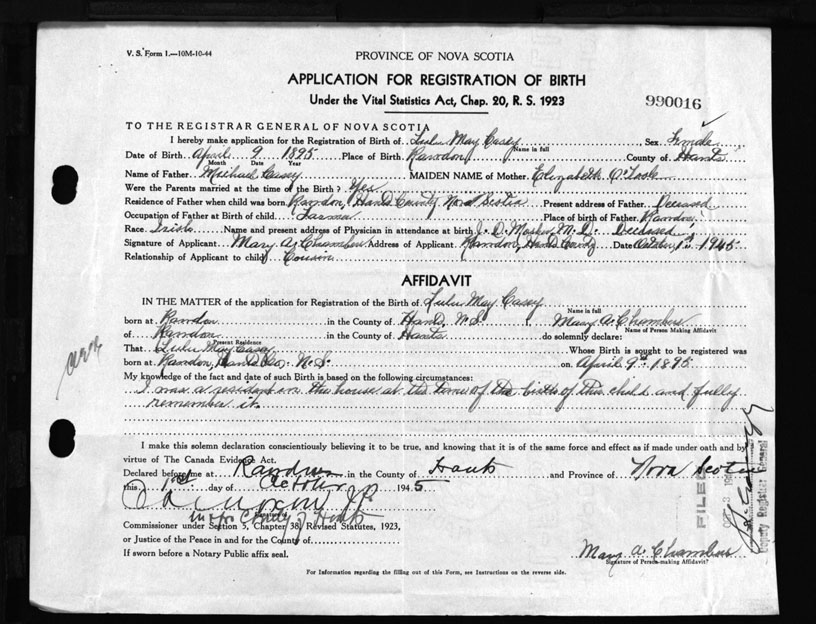 V. S. Form 1.—10M-10-44
PROVINCE OF NOVA SCOTIA
APPLICATION FOR REGISTRATION OF BIRTH
Under the Vital Statistics Act, Chap. 20, R. S. 1923
990016
TO THE REGISTRAR GENERAL OF NOVA SCOTIA
I hereby make application for the Registration of Birth of Lulu May Casey Sex Female
Name in full
Date of Birth April 9 1895 Place of Birth Rawdon County of Hants
Month Date Year
Name of Father Michael Casey MAIDEN NAME of Mother Elizabeth O'Toole
Were the Parents married at the time of the Birth? Yes
Residence of Father when child was born Rawdon, Hants County Nova Scotia Present address of Father Deceased
Occupation of Father at Birth of child Farmer Place of birth of Father Rawdon
Race Irish Name and present address of Physician in attendance at birth J. D. M. D. Deceased
Signature of Applicant Mary A. Chambers Address of Applicant Rawdon, Hants County Date October 1st 1945
Relationship of Applicant to child Cousin
AFFIDAVIT
IN THE MATTER of the application for Registration of the Birth of Lulu May Casey
Name in full
born at Rawdon in the County of Hants, N.S. Mary A. Chambers
Name of Person Making Affidavit
of Rawdon in the County of Hants do solemnly declare:
Present Residence
That Lulu May Casey Whose Birth is sought to be registered was
born at Rawdon, Hants Co. N.S. on April 9th 1895
My knowledge of the fact and date of such Birth is based on the following circumstances:
I was a resident in the house at the time of the birth of this child and fully
remember it.
I make this solemn declaration conscientiously believing it to be true, and knowing that it is of the same force and effect as if made under oath and by
virtue of The Canada Evidence Act.
Declared before me at Rawdon in the County of Hants and Province of Nova Scotia
this 1st day of October 1945
J.P.
in & for County of Hants
Commissioner under Section 5, Chapter 38, Revised Statutes, 1923,
or Justice of the Peace in and for the County of
If sworn before a Notary Public affix seal.
Mary A. Chambers
Signature of Person making Affidavit?
For Information regarding the filling out of this Form, see Instructions on the reverse side.
FILED
Deputy Registrar General